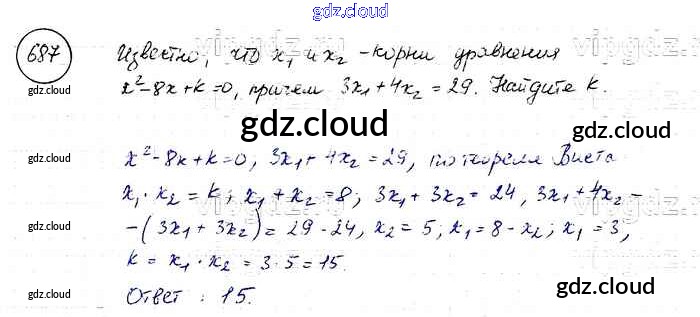 gdz.cloud
687 Известно, что x₁ и x₂ - корни уравнения
gdz.cloud x² - 8x + k = 0, причем 3x₁ + 4x₂ = 29. Найдите k.
gdz.cloud
gdz.cloud x² - 8x + k = 0, 3x₁ + 4x₂ = 29, по теореме Виета
gdz.cloud x₁ · x₂ = k; x₁ + x₂ = 8; 3x₁ + 3x₂ = 24, 3x₁ + 4x₂ -
gdz.cloud - (3x₁ + 3x₂) = 29 - 24, x₂ = 5; x₁ = 8 - x₂; x₁ = 3,
k = x₁ · x₂ = 3 · 5 = 15.
gdz.cloud Ответ: 15. gdz.cloud gdz.cloud